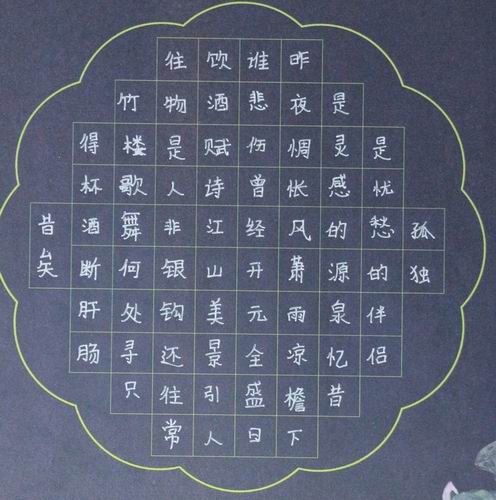 孤独
是忧愁的伴侣
是灵感的源泉忆昔
昨夜惆怅风萧雨凉檐下
谁悲伤曾经开元全盛日
饮酒赋诗江山美景引人
往物是人非银钩还往常
竹楼歌舞何处寻只
得杯酒断肝肠
昔矣